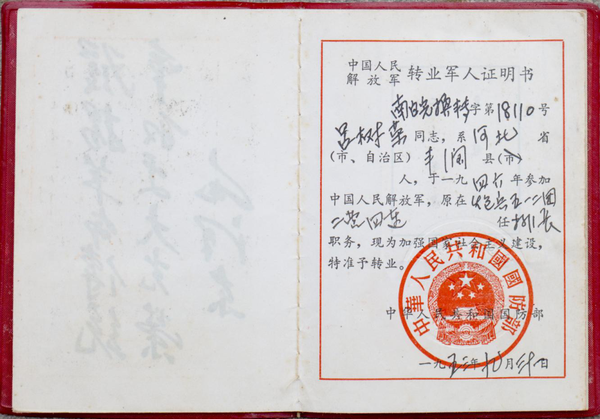 中国人民
解放军 转业军人证明书
字第18110号
吕树荣同志，系河北省
(市、自治区)丰润县(市)
人，于一九四六年参加
中国人民解放军，原在炮兵五一二团
二营四连 任排长
职务，现为加强国家社会主义建设，
特准予转业。
中华人民共和国国防部
中華人民共和國國防部
一九五 年 月 日